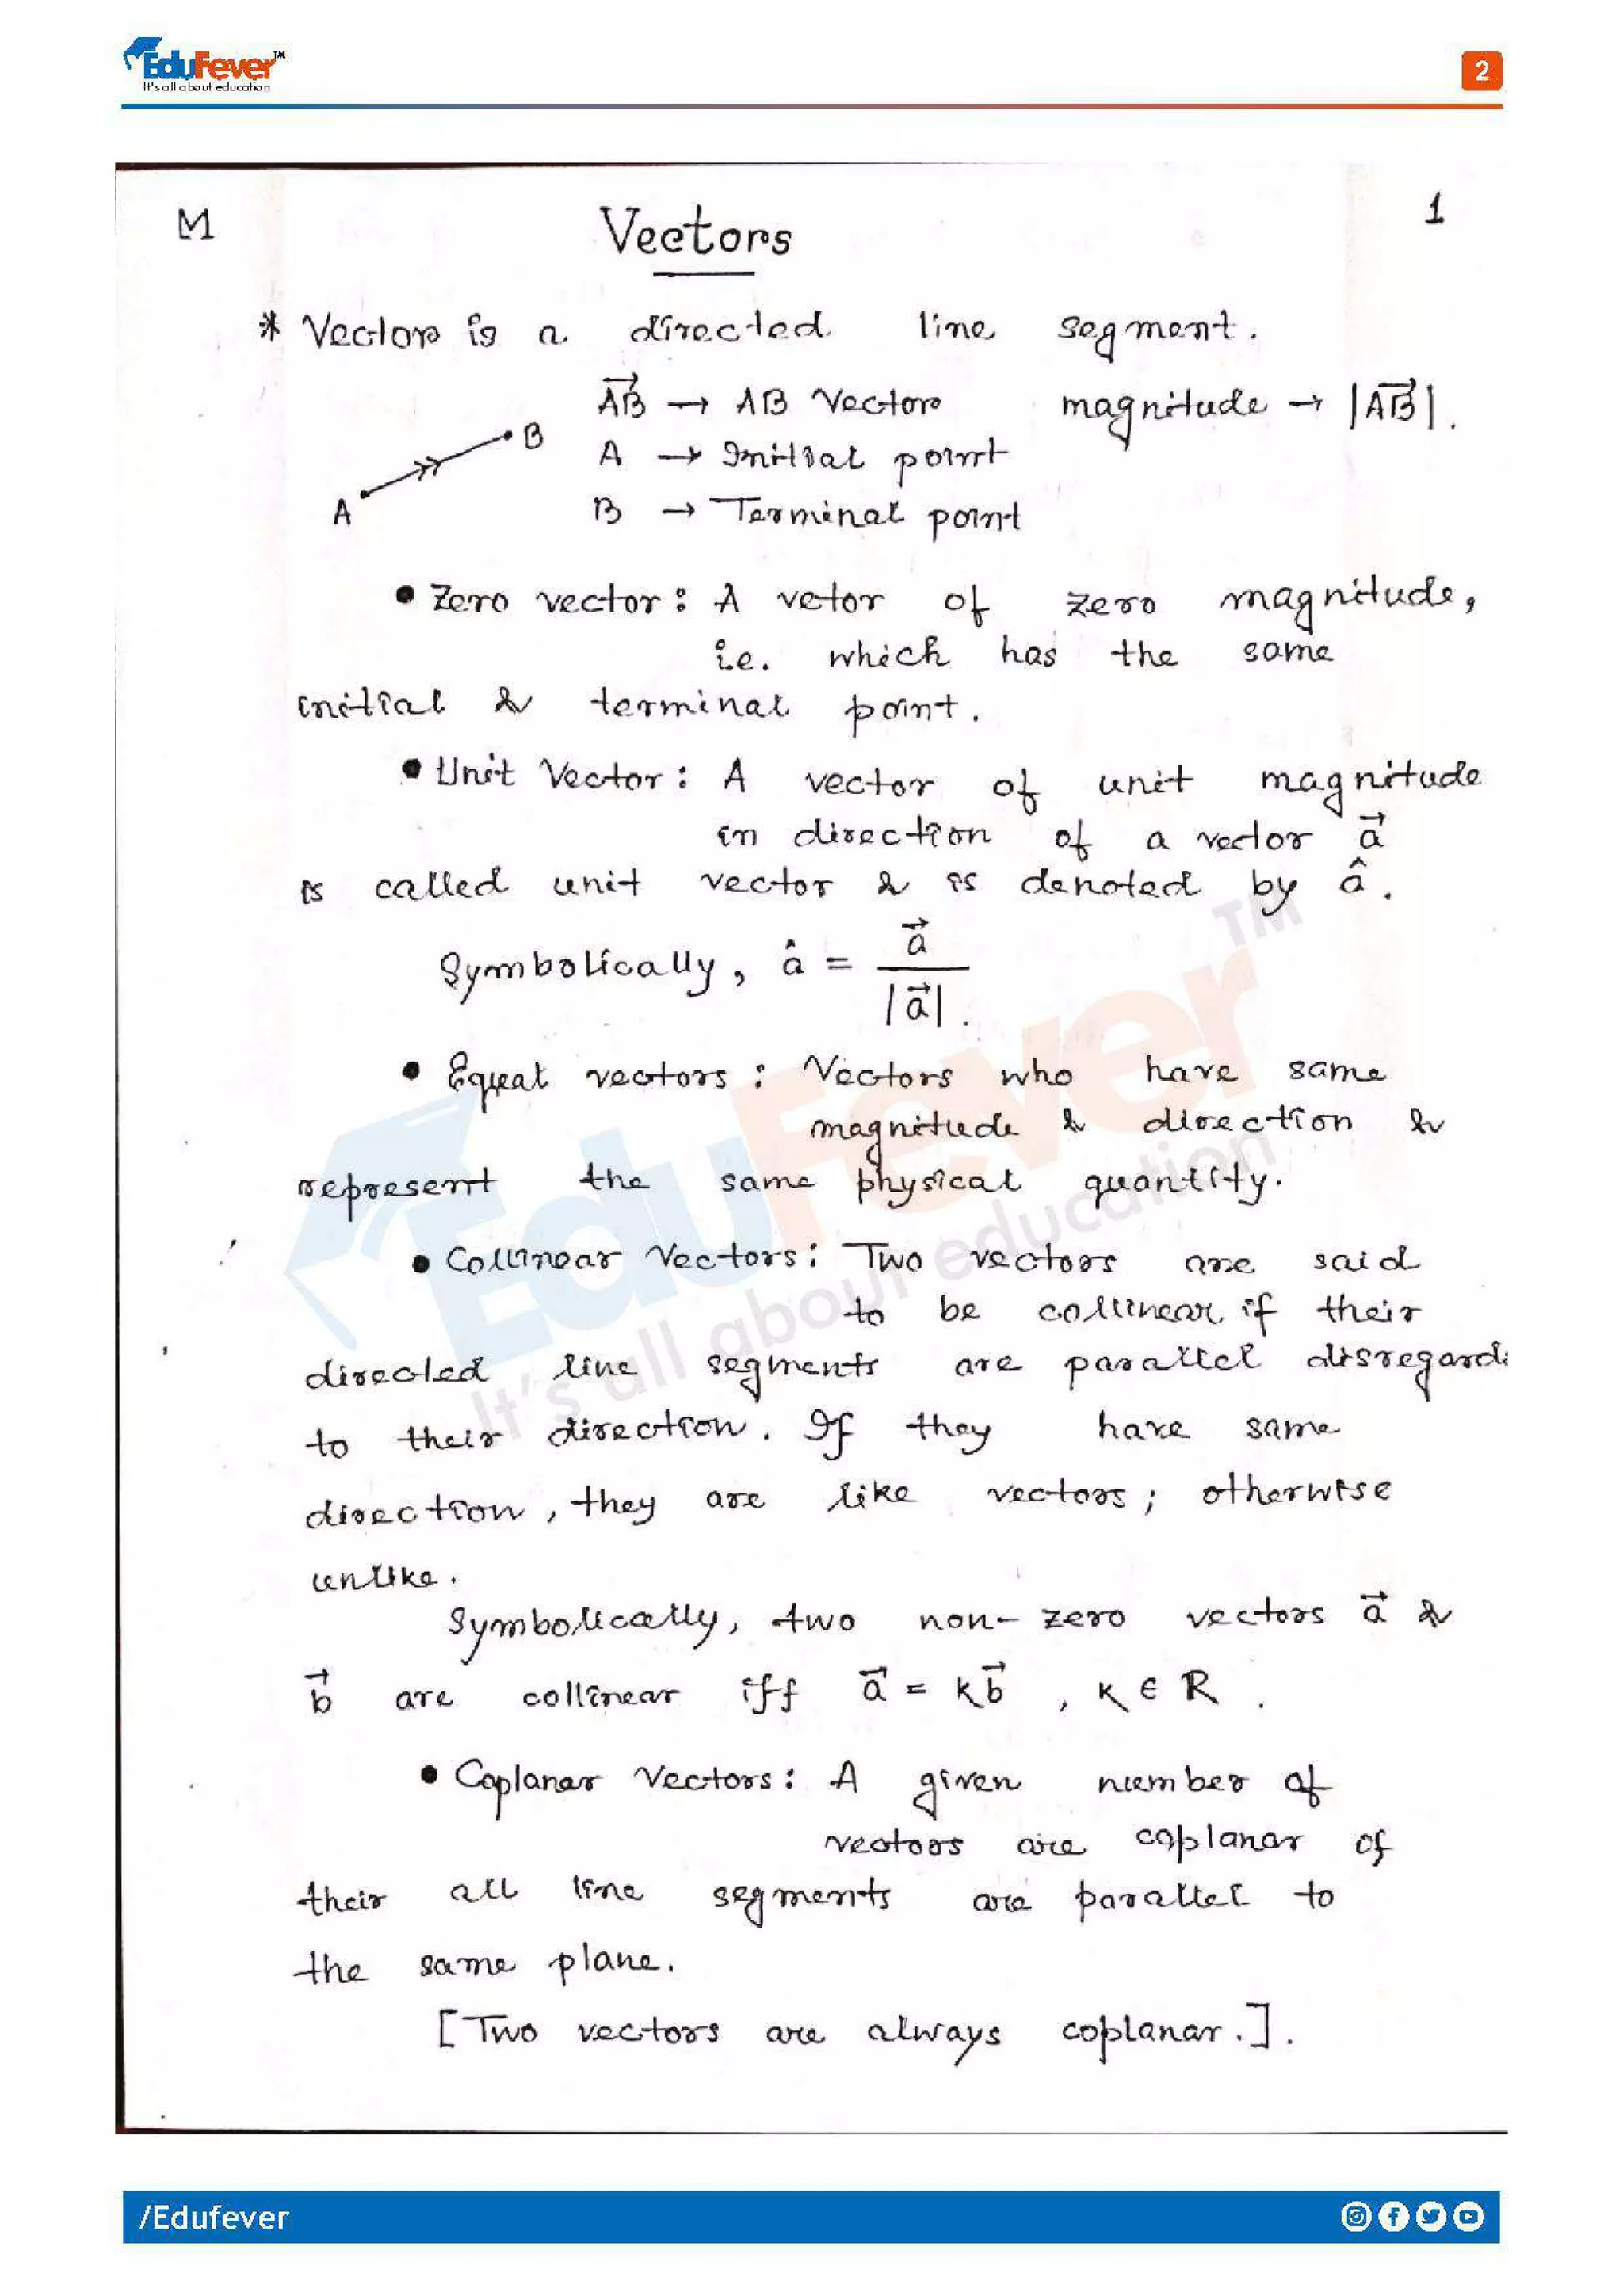 EduFever™
It's all about education
2
M
Vectors
1
* Vector is a directed line segment.
$\vec{AB}$ → AB Vector magnitude → $|\vec{AB}|$.
B
A → Initial point
A
B → Terminal point
• Zero vector : A vetor of zero magnitude,
i.e. which has the same
initial & terminal point.
• Unit Vector : A vector of unit magnitude
in direction of a vector $\vec{a}$
is called unit vector & is denoted by $\hat{a}$.
Symbolically, $\hat{a} = \frac{\vec{a}}{|\vec{a}|}$.
• Equal vectors : Vectors who have same
magnitude & direction &
represent the same physical quantity.
• Collinear Vectors : Two vectors are said
to be collinear if their
directed line segments are parallel disregardi
to their direction. If they have same
direction, they are like vectors ; otherwise
unlike.
Symbolically, two non-zero vectors $\vec{a}$ &
$\vec{b}$ are collinear iff $\vec{a} = k\vec{b}$ , K ∈ R .
• Coplanar Vectors : A given number of
vectors are coplanar of
their all line segments are parallel to
the same plane.
[Two vectors are always coplanar.].
EduFever™
It's all about education
/Edufever